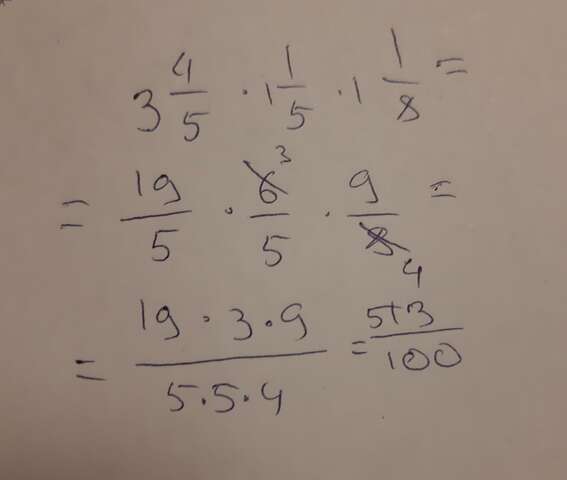 3 4/5 · 1 1/5 · 1 1/8 =
= 19/5 · 6/5 · 9/8 =
3
4
= 19 · 3 · 9 / 5 · 5 · 4 = 513/100